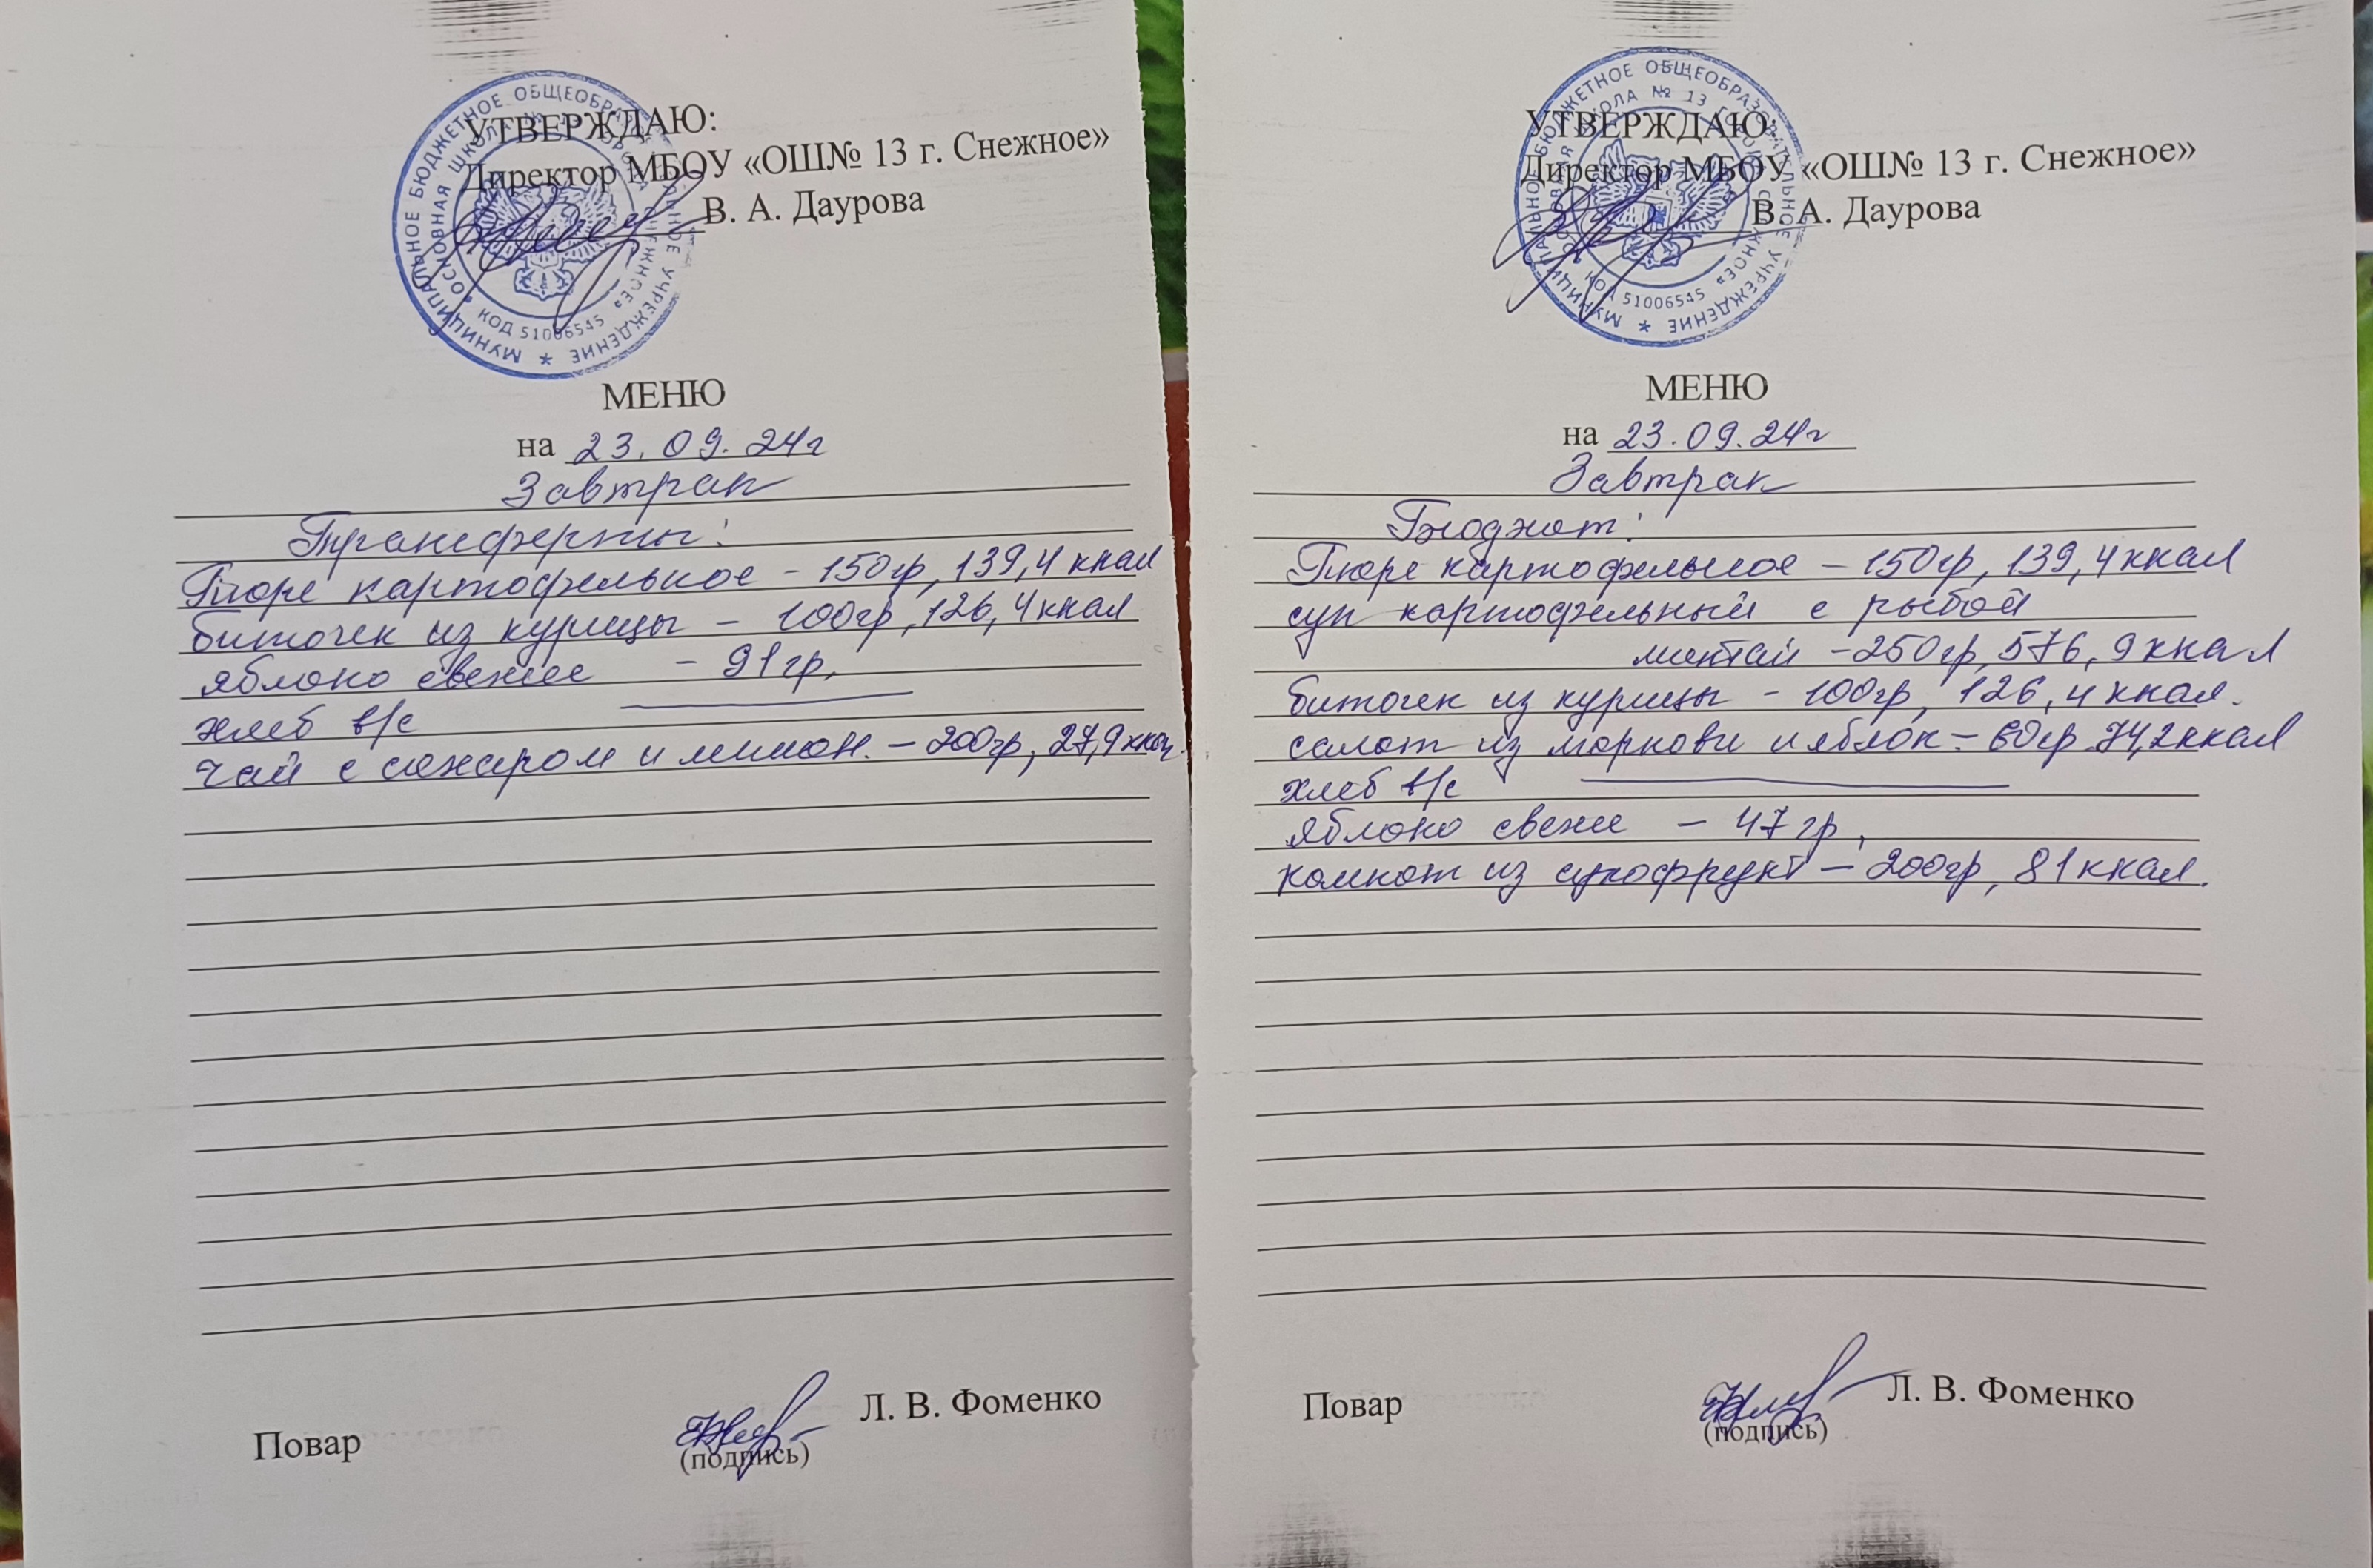 УТВЕРЖДАЮ:
Директор МБОУ «ОШ№ 13 г. Снежное»
В. А. Даурова
МУНИЦИПАЛЬНОЕ БЮДЖЕТНОЕ ОБЩЕОБРАЗОВАТЕЛЬНОЕ УЧРЕЖДЕНИЕ *
КОД 51006545
МЕНЮ
на 23.09.24г
Завтрак
Трансферты:
Пюре картофельное - 150гр, 139,4 ккал
биточек из курицы - 100гр, 126,4 ккал
яблоко свежее - 91гр,
хлеб в/с
чай с сахаром и лимон. - 200гр, 27,9 ккал.
Повар
Л. В. Фоменко
(подпись)
УТВЕРЖДАЮ:
Директор МБОУ «ОШ№ 13 г. Снежное»
В. А. Даурова
МУНИЦИПАЛЬНОЕ БЮДЖЕТНОЕ ОБЩЕОБРАЗОВАТЕЛЬНОЕ УЧРЕЖДЕНИЕ *
КОД 51006545
МЕНЮ
на 23.09.24г
Завтрак
Бюджет:
Пюре картофельное - 150гр, 139,4 ккал
суп картофельный с рыбой
минтай - 250гр, 576,9 ккал
биточек из курицы - 100гр, 126,4 ккал.
салат из моркови и яблок - 60гр 74,2 ккал
хлеб в/с
яблоко свеже - 47гр,
компот из сухофрукт - 200гр, 81 ккал.
Повар
Л. В. Фоменко
(подпись)